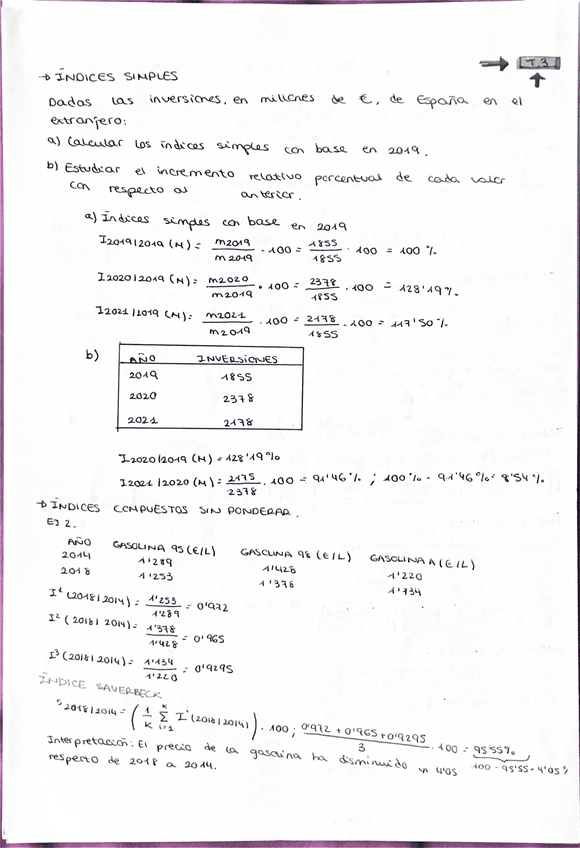 → T.3
→ ÍNDICES SIMPLES
Dadas las inversiones, en millones de €, de España en el
extranjero:
a) Calcular los índices simples con base en 2019.
b) Estudiar el incremento relativo porcentual de cada valor
con respecto al anterior.
a) Índices simples con base en 2019
I2019/2019 (M) = m2019/m2019 · 100 = 1855/1855 · 100 = 100%
I2020/2019 (M) = m2020/m2019 · 100 = 2378/1855 · 100 = 128'19%
I2021/2019 (M) = m2021/m2019 · 100 = 2178/1855 · 100 = 117'50%
b) AÑO INVERSIONES
2019 1855
2020 2378
2021 2178
I2020/2019 (M) = 128'19%
I2021/2020 (M) = 2175/2378 · 100 = 91'46% ; 100% - 91'46% = 8'54%
→ ÍNDICES COMPUESTOS SIN PONDERAR.
EJ 2.
AÑO GASOLINA 95 (€/L) GASOLINA 98 (€/L) GASOLINA A (€/L)
2014 1'289 1'428 1'220
2018 1'253 1'378 1'134
I¹ (2018/2014) = 1'253/1'289 = 0'972
I² (2018/2014) = 1'378/1'428 = 0'965
I³ (2018/2014) = 1'134/1'220 = 0'9295
ÍNDICE SAUERBECK
S2018/2014 = (1/K Σ K i=1 Iⁱ (2018/2014)) · 100 ; 0'972 + 0'965 + 0'9295/3 · 100 = 95'55%
100 - 95'55 = 4'05%
Interpretación: El precio de la gasolina ha disminuido un 4'05
respecto de 2018 a 2014.